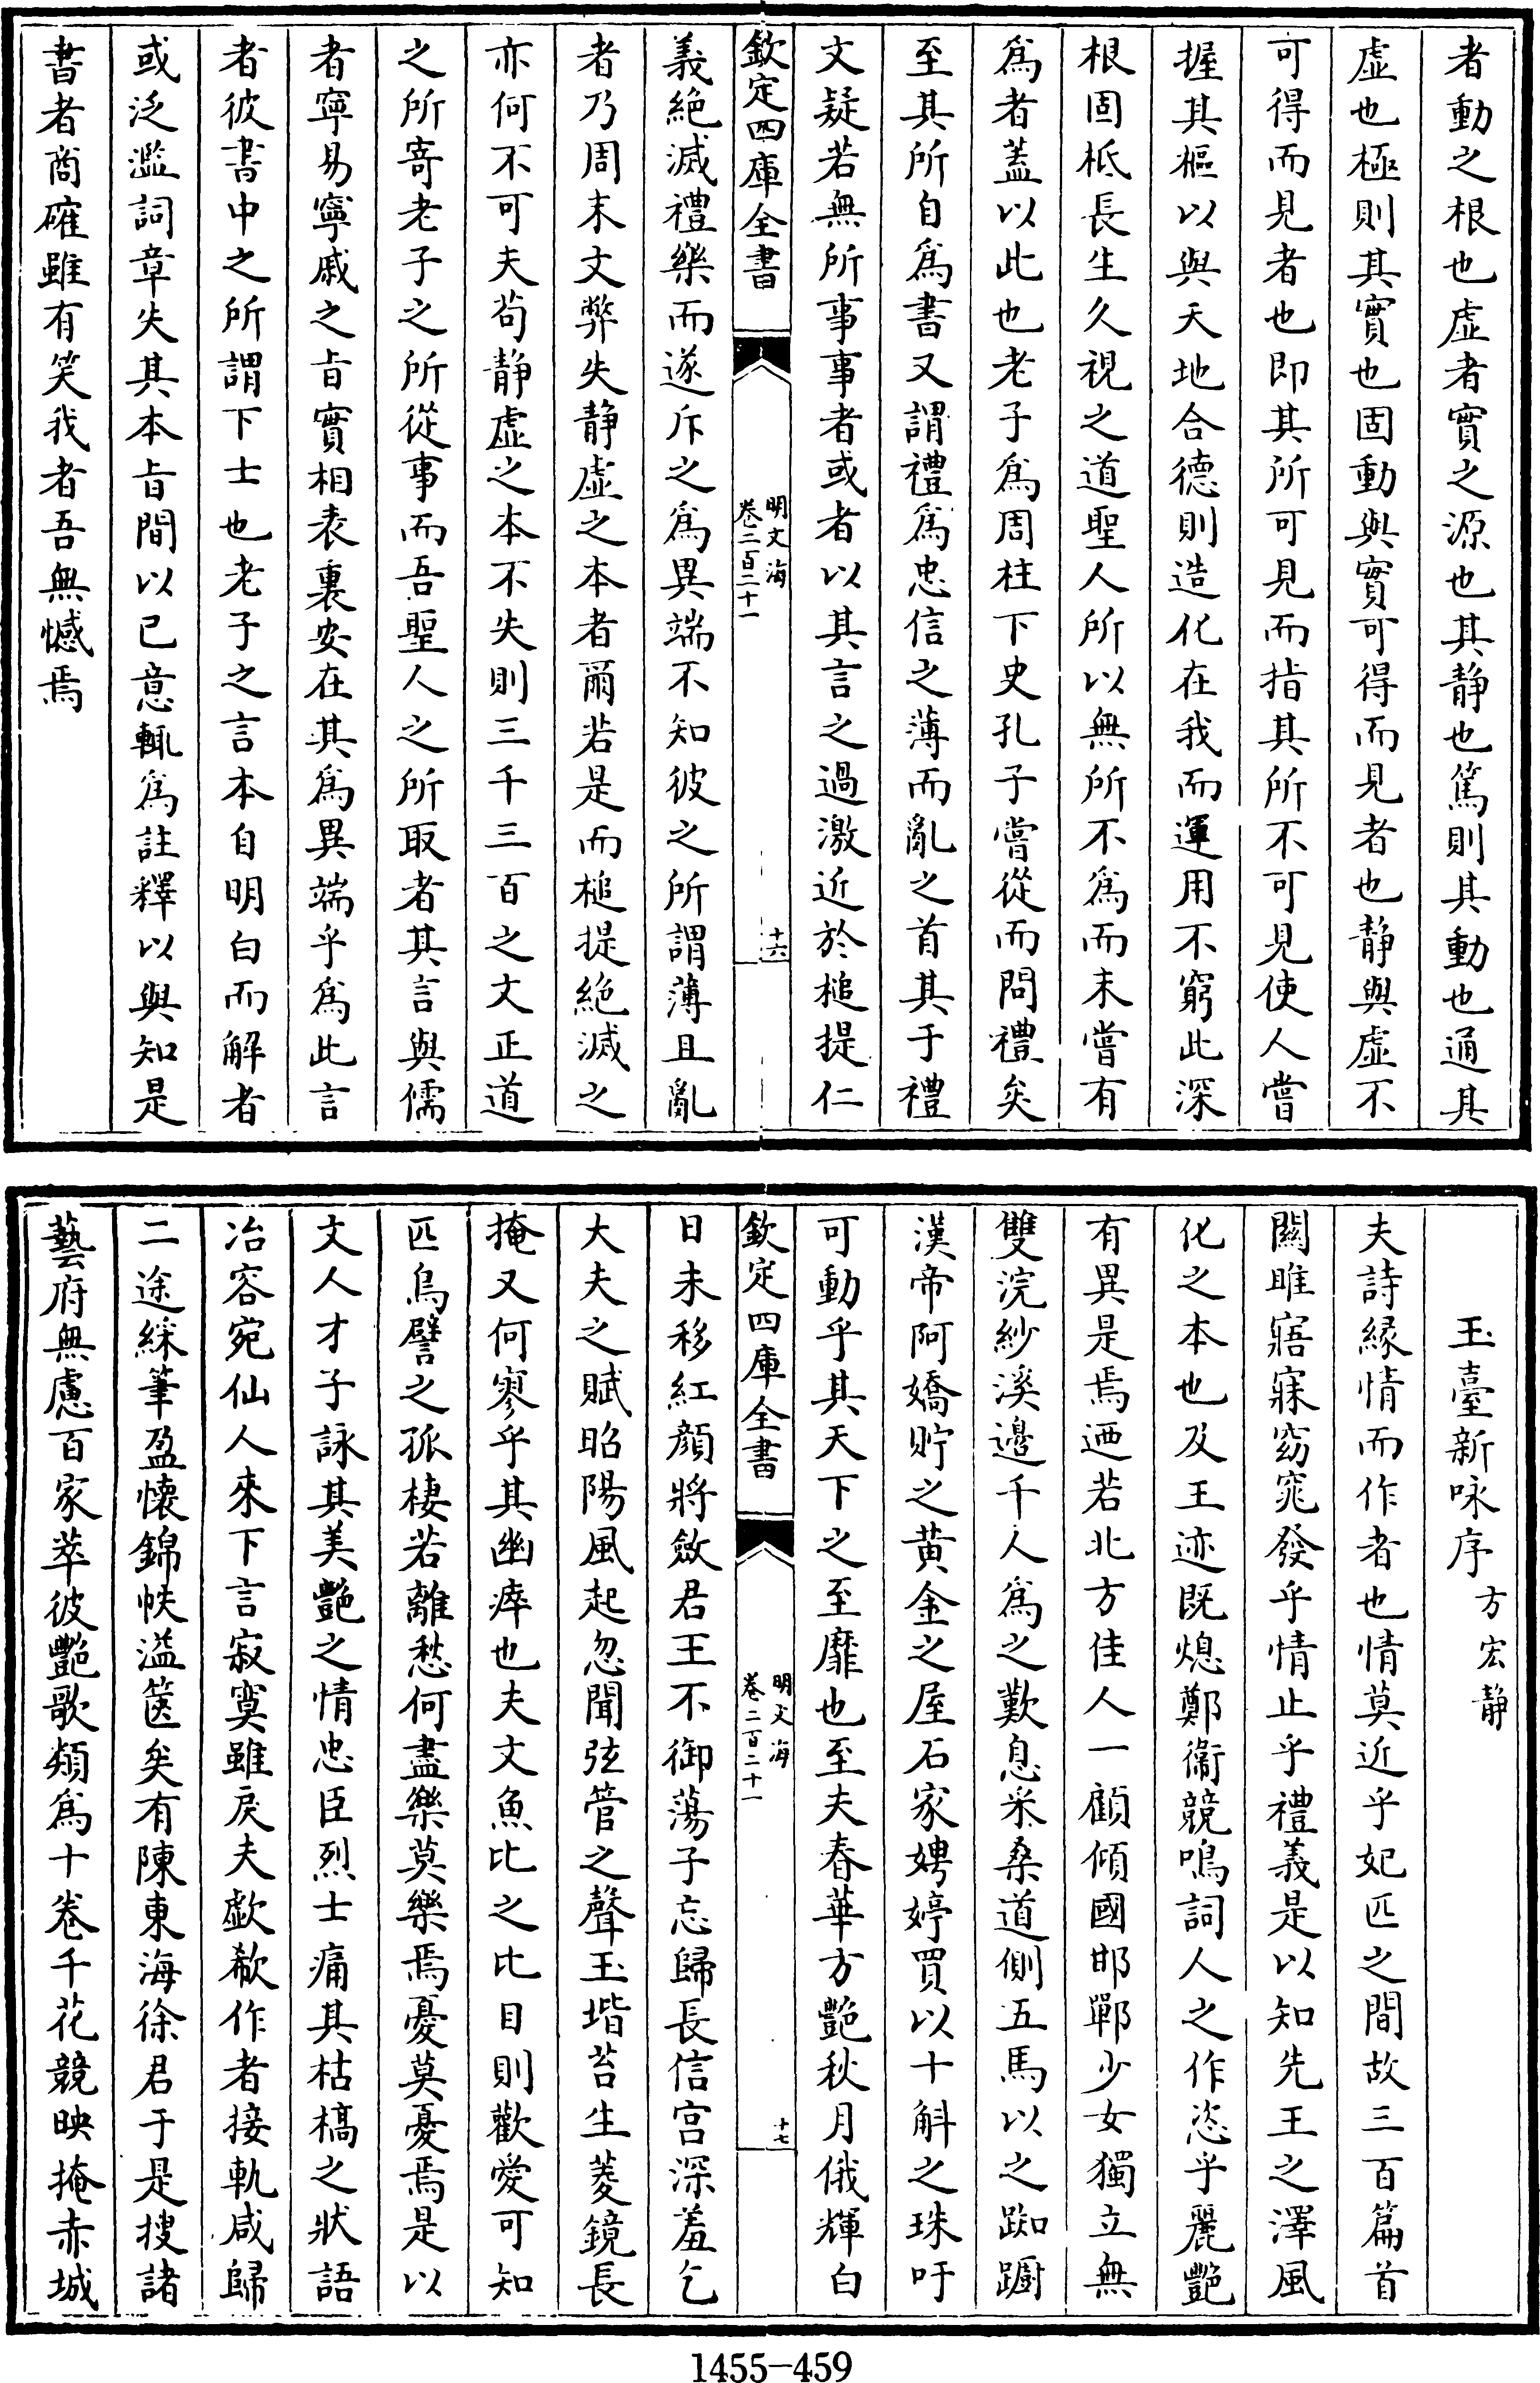 者動之根也虛者實之源也其静也篤則其動也通其
虛也極則其實也固動與實可得而見者也静與虛不
可得而見者也即其所可見而指其所不可見使人嘗
握其樞以與天地合德則造化在我而運用不窮此深
根固柢長生久視之道聖人所以無所不為而未嘗有
為者蓋以此也老子為周柱下史孔子嘗從而問禮矣
至其所自為書又謂禮為忠信之薄而亂之首其于禮
文疑若無所事事者或者以其言之過激近於槌提仁
欽定四庫全書
明文海
卷二百二十一
十六
義絶滅禮樂而遂斥之為異端不知彼之所謂薄且亂
者乃周末文弊失静虛之本者爾若是而槌提絶滅之
亦何不可夫苟静虛之本不失則三千三百之文正道
之所寄老子之所從事而吾聖人之所取者其言與儒
者寧易寧戚之旨實相表裏安在其為異端乎為此言
者彼書中之所謂下士也老子之言本自明白而解者
或泛濫詞章失其本旨間以已意輒為註釋以與知是
書者商確雖有笑我者吾無憾焉
玉臺新咏序 方宏静
夫詩緣情而作者也情莫近乎妃匹之間故三百篇首
關雎寤寐窈窕發乎情止乎禮義是以知先王之澤風
化之本也及王迹既熄鄭衞競鳴詞人之作恣乎麗艷
有異是焉迺若北方佳人一顧傾國邯鄲少女獨立無
雙浣紗溪邊千人為之歎息采桑道側五馬以之踟躕
漢帝阿嬌貯之黄金之屋石家娉婷買以十斛之珠吁
可動乎其天下之至靡也至夫春華方艷秋月俄輝白
欽定四庫全書
明文海
卷二百二十一
十七
日未移紅顔將斂君王不御蕩子忘歸長信宫深羞乞
大夫之賦昭陽風起忽聞弦管之聲玉堦苔生菱鏡長
掩又何寥乎其幽瘁也夫文魚比之比目則歡愛可知
匹鳥譬之孤棲若離愁何盡樂莫樂焉憂莫憂焉是以
文人才子詠其美艷之情忠臣烈士痛其枯槁之狀語
冶容宛仙人來下言寂寞雖戾夫歔欷作者接軌咸歸
二途綵筆盈懷錦帙溢篋矣有陳東海徐君于是搜諸
藝府無慮百家萃彼艷歌類為十卷千花競映掩赤城
1455-459